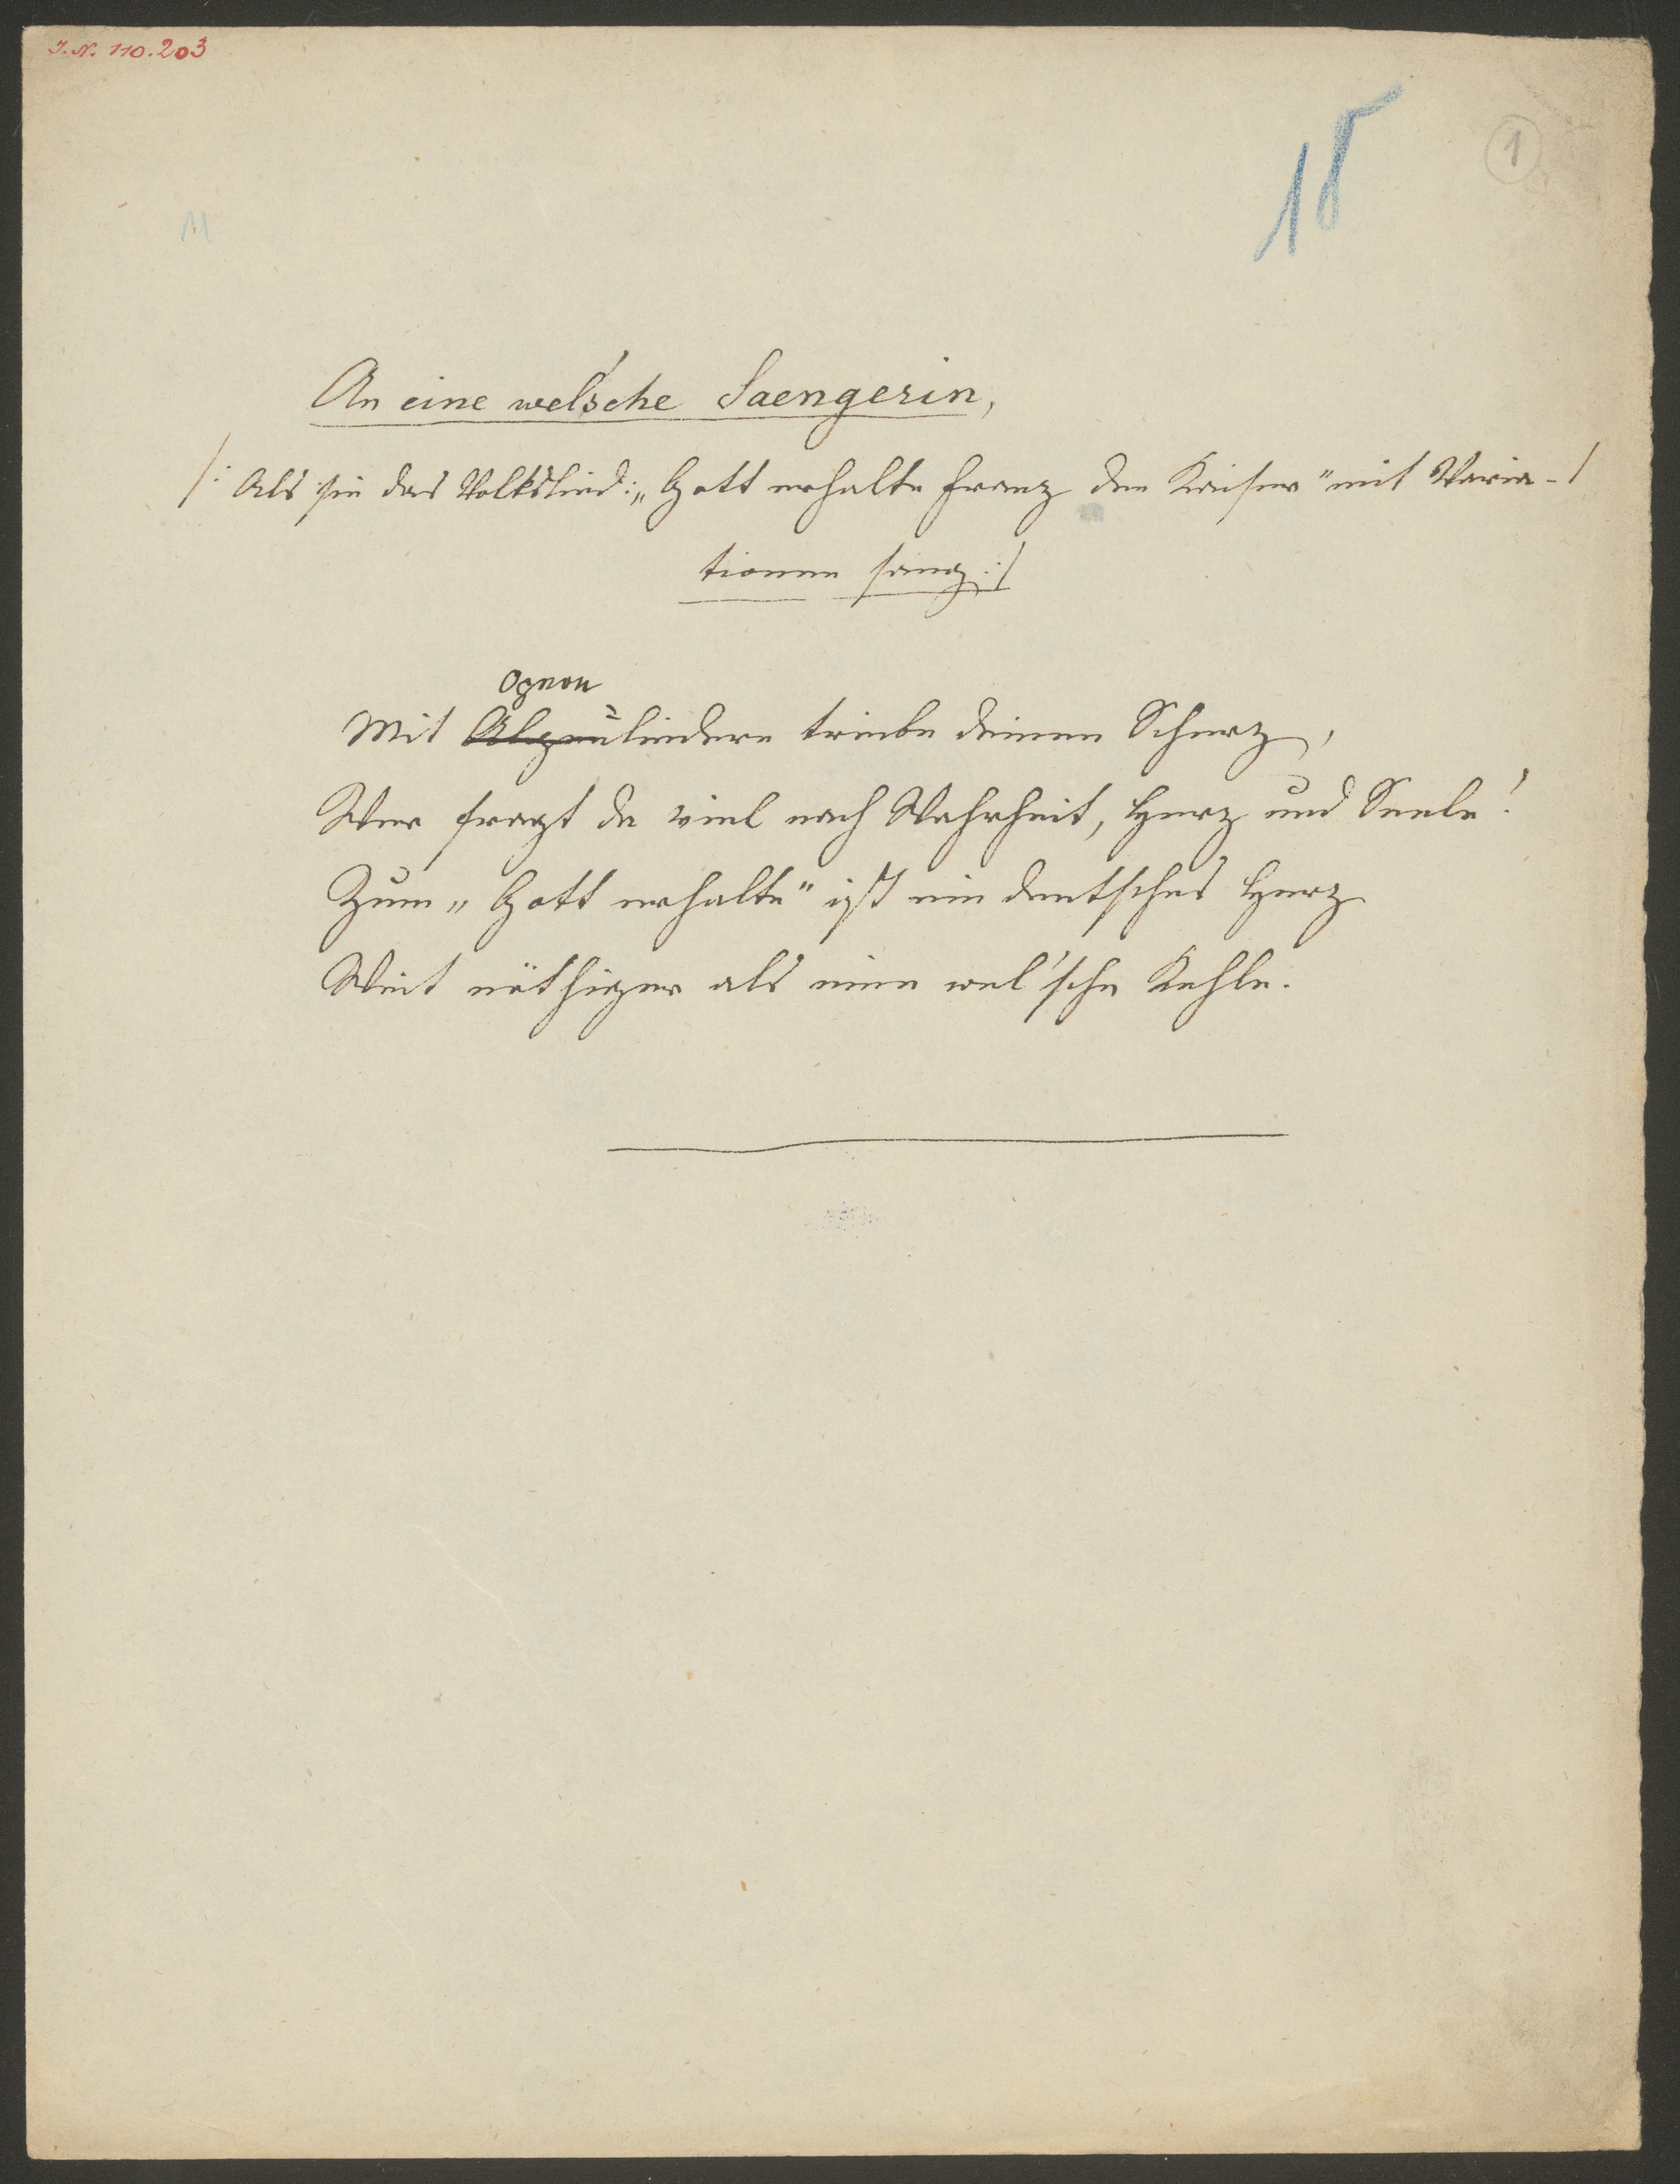 J. N. 110.203
18
1
11
An eine wel'sche Saengerin,
/: Als sie das Volkslied: „Gott erhalte Franz den Kaiser" mit Varia-/
tionen sang :/
Opern
Mit Alpenliedern treibe deinen Scherz,
Wer fragt da viel nach Wahrheit, Herz und Seele!
Zum „Gott erhalte" ist ein deutsches Herz
Weit nöthiger als eine wel'sche Kehle.